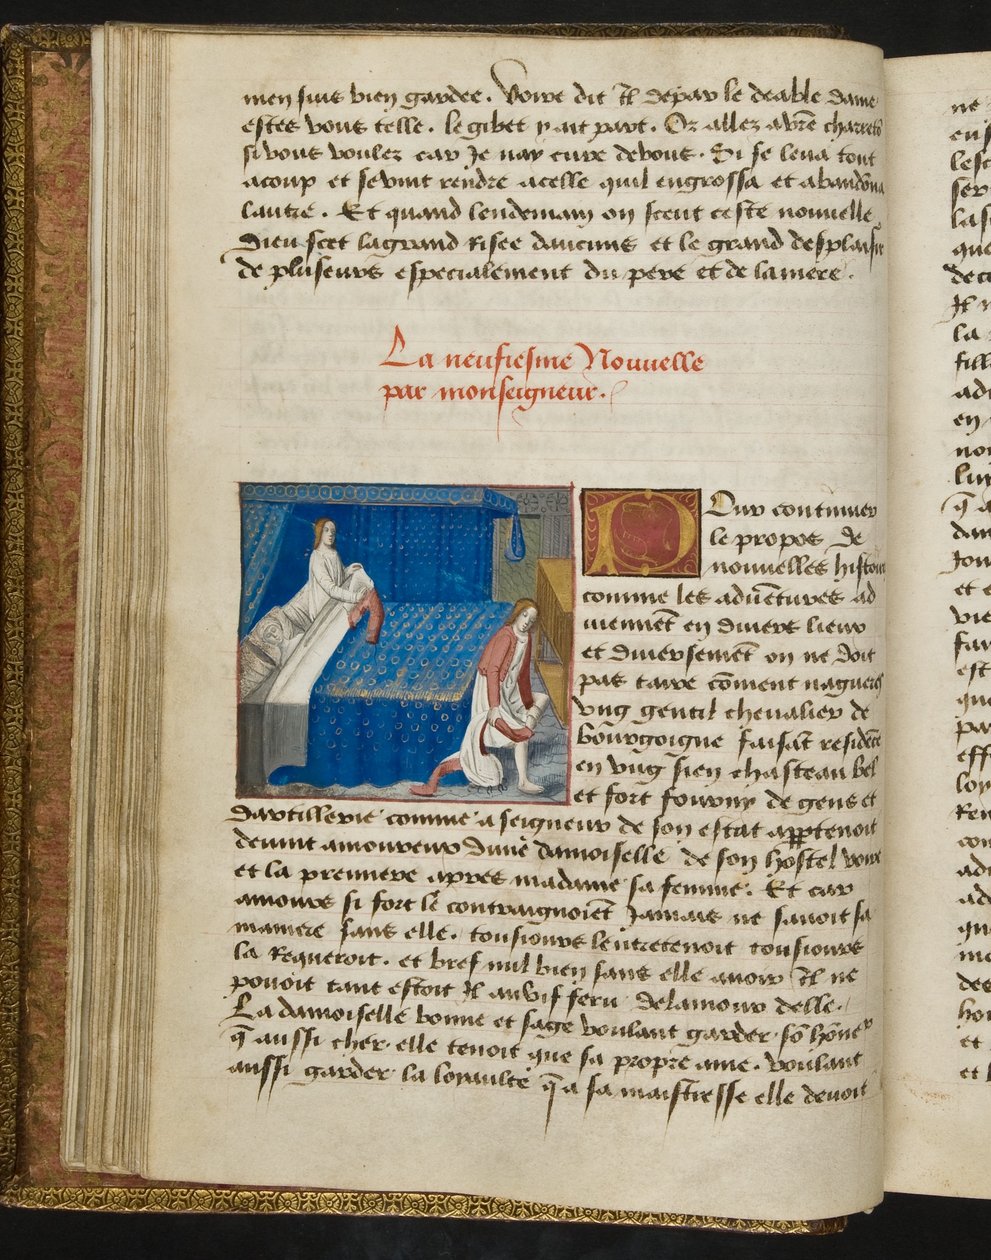 men suis bien gardee. Voire dit Il depar le deable dame
estes vous telle. le gibet y ait part. Or allez avẽc charretõ
si vous voulez car Je nay cure de vous. Si se leva tout
acoup et se vint rendre a celle quil engrossa et abandõna
lautre. Et quand lendemain on sceut ceste nouvelle
Dieu scet la grand Risee daucuns et le grand desplaisir
de pluseurs especialement du pere et de la mere.
La neufiesme Nouuelle
par monseigneur.
POur continuer
le propos de
nouuelles histoires
comme les aduẽtures ad
uiennẽt en diuers lieux
et diuersemẽt on ne doit
pas taire cõment nagueres
vng gentil cheualier de
bourgoigne faisãt residẽce
en vng sien chasteau bel
et fort fourny de gens et
dartillerie comme a seigneur de son estat apptenoit
deuint amoureux dune damoiselle de son hostel voire
et la premiere apres madame sa femme. Et car
amours si fort le contraignoiẽt Jamais ne sauoit sa
maniere sans elle. tousiours lentretenoit tousiours
la Requeroit. et bref nul bien sans elle auoir Il ne
pouoit tant estoit Il au vif feru de lamour delle.
La damoiselle bonne et sage voulant garder sõ hõneᷣ
q̃ aussi cher elle tenoit que sa propre ame. voulant
aussi garder la loyaulte q̃ a sa maistresse elle deuoit